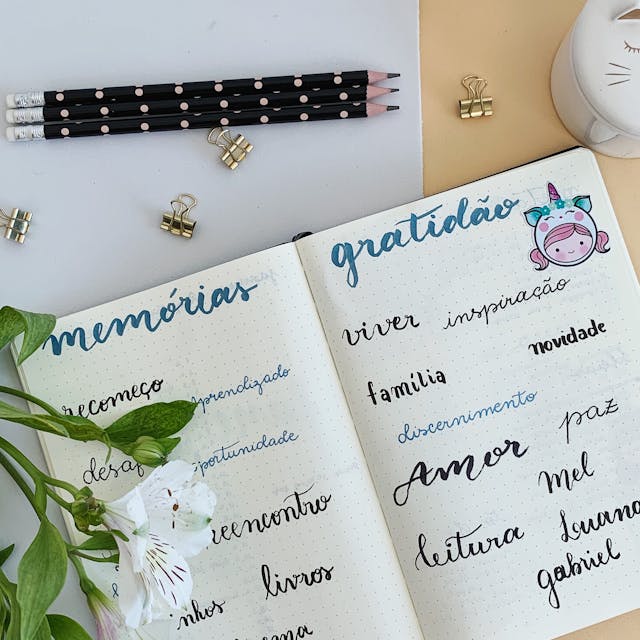 memórias
recomeço aprendizado
oportunidade
reencontro
livros
gratidão
viver inspiração
novidade
família
discernimento
Amor paz
mel
leitura Luana
gabriel